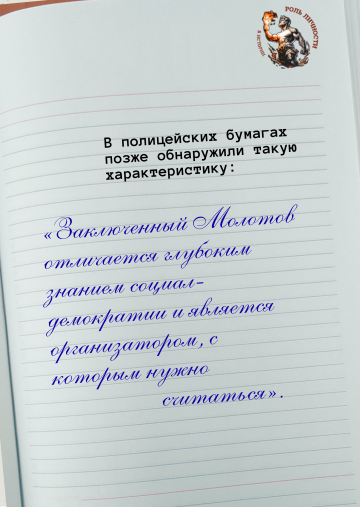 РОЛЬ ЛИЧНОСТИ
В ИСТОРИИ
В полицейских бумагах
позже обнаружили такую
характеристику:
«Заключенный Молотов
отличается глубоким
знанием социал-
демократии и является
организатором, с
которым нужно
считаться».